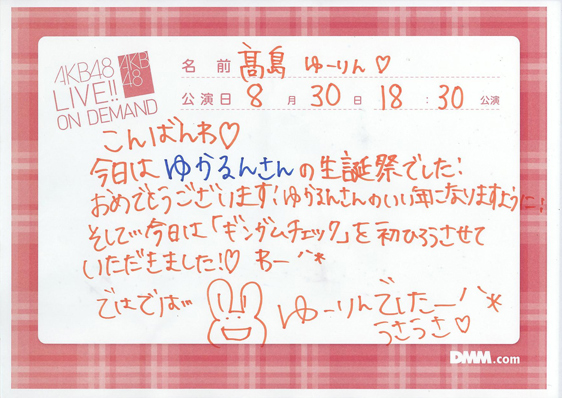 AKB48
LIVE!!
ON DEMAND
AKB
48
名前 髙島 ゆーりん♡
公演日 8月30日 18:30公演
こんばんわ♡
今日はゆかるんさんの生誕祭でした!
おめでとうございます!ゆかるんさんのいい年になりますように!
そして…今日は「ギンガムチェック」を初ひろうさせて
いただきました!♡ わー^^*
ではでは…
ゆーりんでしたー^^*
うさうさ♡
DMM.com